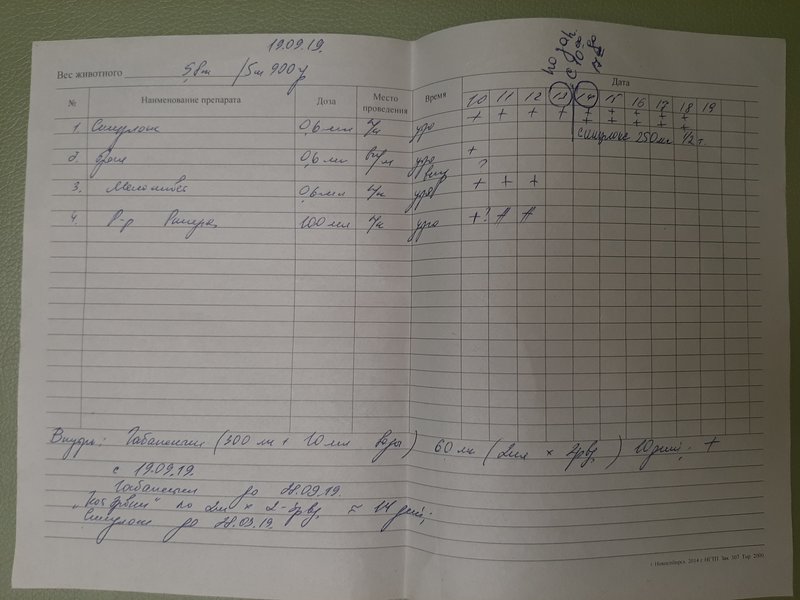 19.09.19.
Вес животного 5,8кг /5кг 900гр
по
№ Наименование препарата Доза Место проведения Время Дата
10 11 12 13 14 15 16 17 18 19
1. Синулокс 0,6 мл п/к утро + + + + + + + + +
+ + + + +
синулокс 250мг 1/2 т.
2. 0,6 мл в/м утро +
веч ?
3. Мелоксивет 0,6мл п/к утро + + +
4. Р-р Рингера 100 мл п/к утро +? # #
Внутрь: Габапентин (300 мг + 10мл воды) 60 мг (2мл × 2р/д) 10 дней; +
с 19.09.19.
Габапентин до 28.09.19.
"Кот Ервин" по 2мл × 2-3р/д ≈ 14 дней;
Синулокс до 28.09.19.
г. Новосибирск. 2014 г. НГТП Зак. 307 Тир. 2000